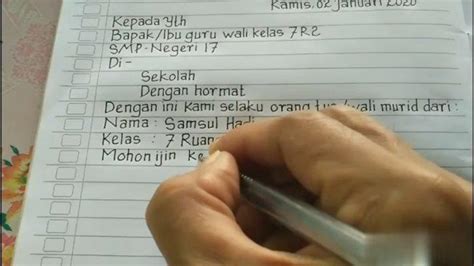 Kamis, 02 Januari 2020
Kepada Yth
Bapak/Ibu guru wali kelas 7R2
SMP. Negeri 17
Di-
Sekolah
Dengan hormat
Dengan ini kami selaku orang tua/wali murid dari :
Nama : Samsul Hadi
Kelas : 7 Ruan
Mohon ijin ke